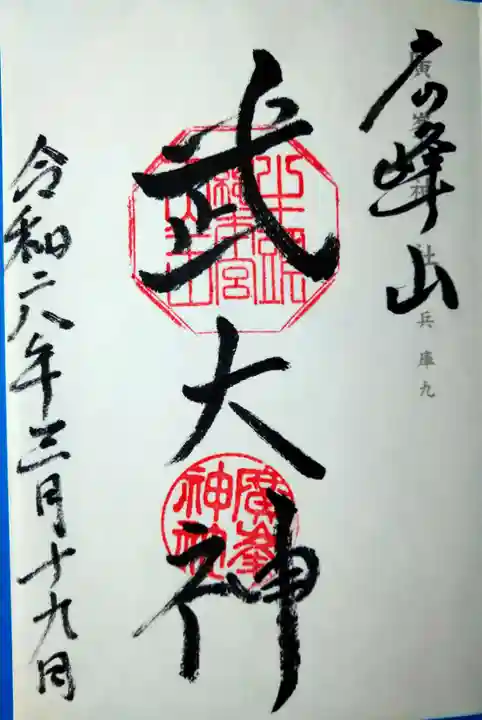 広峰山
廣峯神社 兵庫九
武大神
廣峯神社
令和六年三月十九日